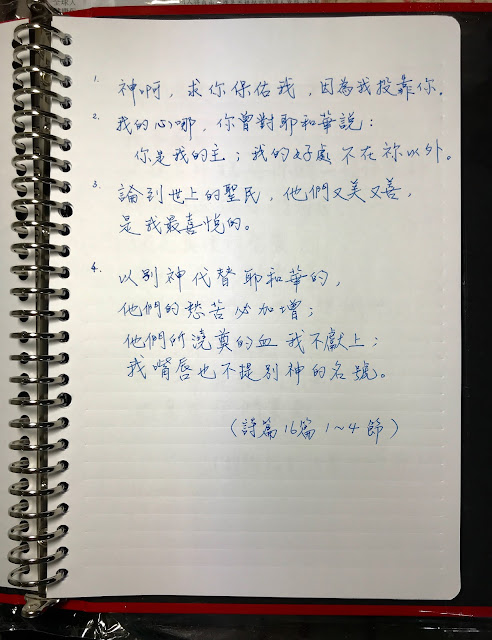 1. 神啊，求你保佑我，因為我投靠你.
2. 我的心哪，你曾對耶和華說：
你是我的主；我的好處不在祢以外。
3. 論到世上的聖民，他們又美又善，
是我最喜悅的。
4. 以別神代替耶和華的，
他們的愁苦必加增；
他們所澆奠的血我不獻上；
我嘴唇也不提別神的名號。
（詩篇16篇1~4節）